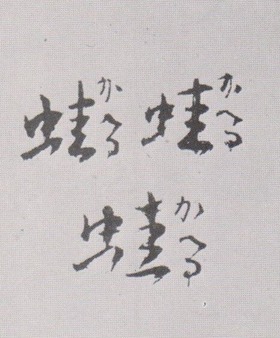 蛙
かへる
蛙
かへる
蛙
かへる